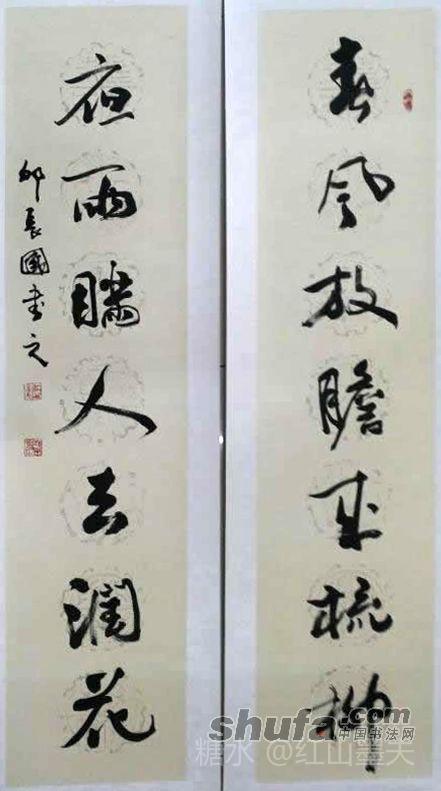 春风放膽来梳柳
夜雨瞞人去潤花
邱長國書之
shufa.com
中国书法网
糖水 @红山墨夫